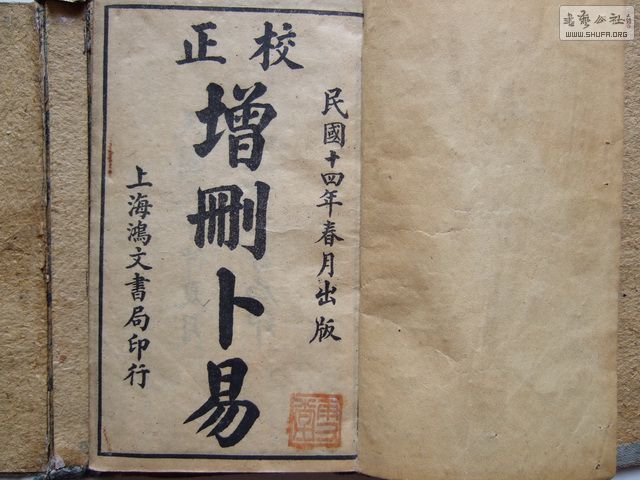 校正
民國十四年春月出版
增刪卜易
上海鴻文書局印行
書藝公社
WWW.SHUFA.ORG